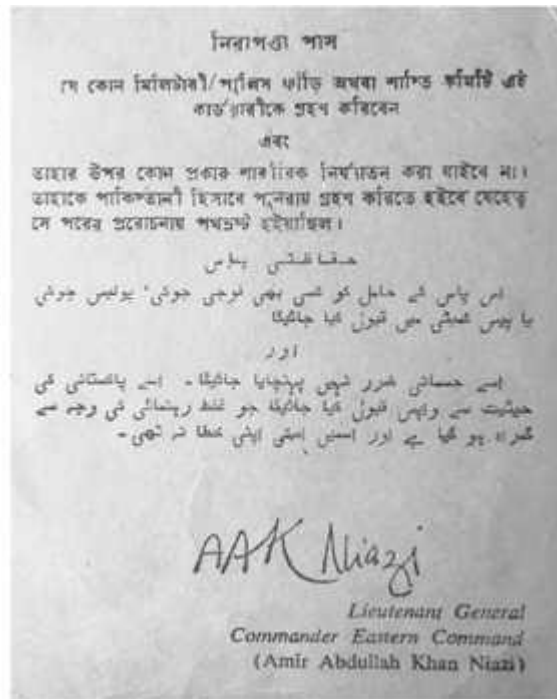 নিরাপত্তা পাস
যে কোন মিলিটারী/পুলিস ফাঁড়ি অথবা শান্তি কমিটি এই
কার্ডধারীকে গ্রহণ করিবেন
এবং
তাহার উপর কোন প্রকার শারীরিক নির্যাতন করা যাইবে না।
তাহাকে পাকিস্তানী হিসাবে পুনরায় গ্রহণ করিতে হইবে যেহেতু
সে পরের প্ররোচনায় পথভ্রষ্ট হইয়াছিল।
حفاظتی پاس
اس پاس کے حامل کو کسی بھی فوجی چوکی، پولیس چوکی
یا پیس کمیٹی میں قبول کیا جائیگا
اور
اسے جسمانی ضرر نہیں پہنچایا جائیگا۔ اسے پاکستانی کی
حیثیت سے واپس قبول کیا جائیگا جو غلط رہنمائی کی وجہ سے
گمراہ ہو گیا ہے اور اسمیں اسکی اپنی خطا نہ تھی۔
AAK Niazi
Lieutenant General
Commander Eastern Command
(Amir Abdullah Khan Niazi)